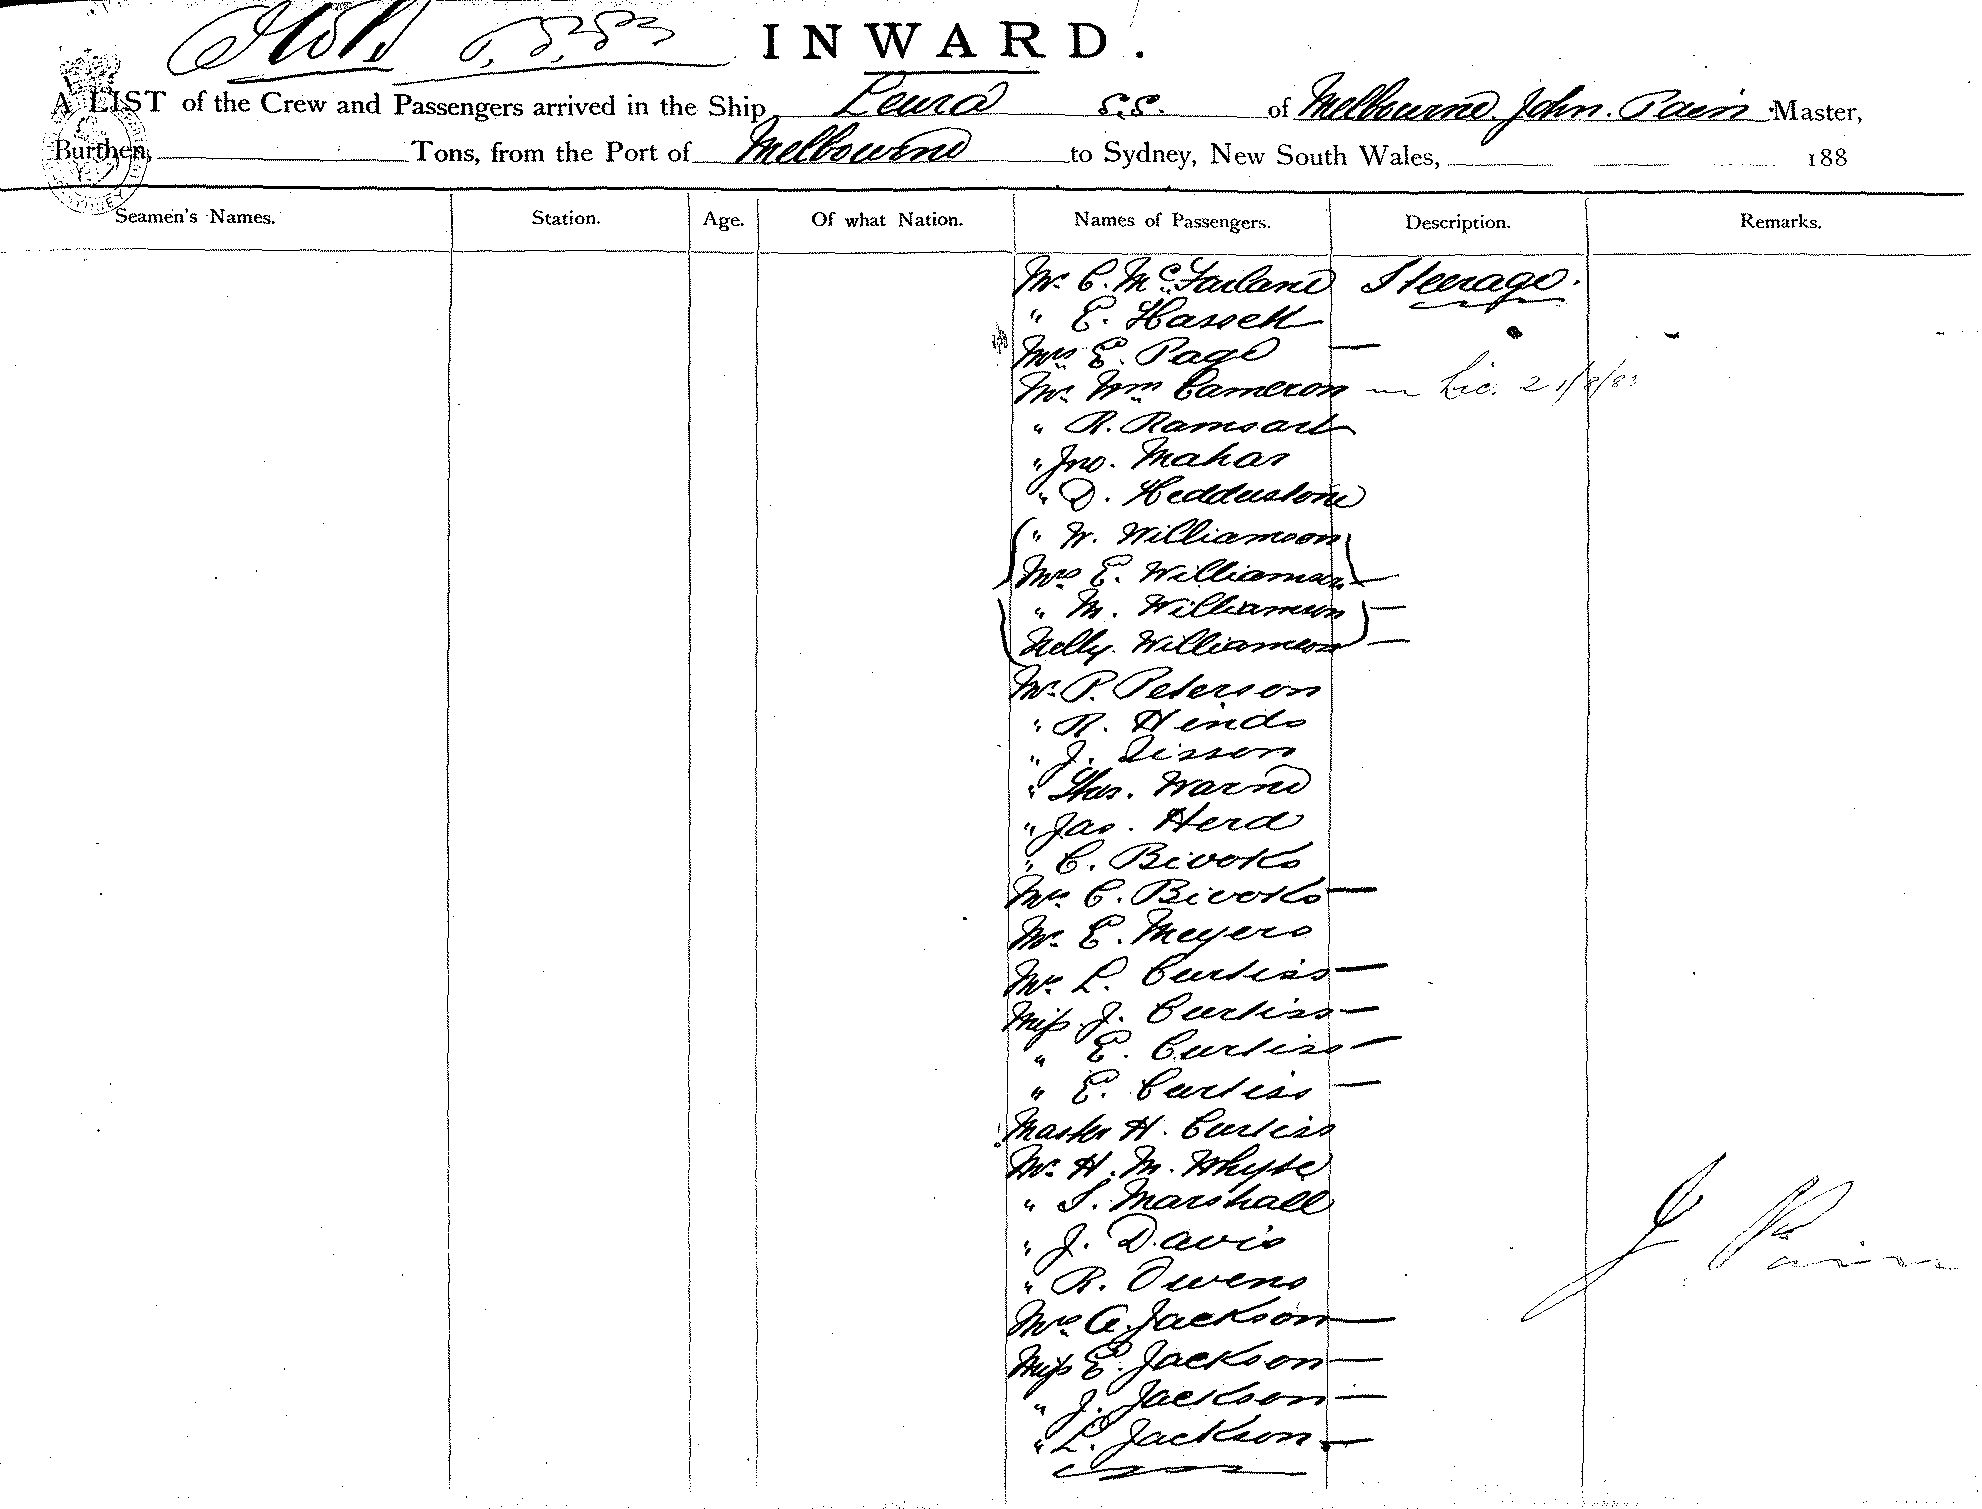 INWARD.
A LIST of the Crew and Passengers arrived in the Ship Leura S.S. of Melbourne John. Pain Master,
Burthen, Tons, from the Port of Melbourne to Sydney, New South Wales, 188
Seamen's Names. Station. Age. Of what Nation. Names of Passengers. Description. Remarks.
Mr. C. McFarlane Steerage.
" E. Hassett
Mrs E. Page —
Mr. Wm Cameron — Lic.
" R.
" Jno. Mahar
" D. Heddustone
" W. Williamson
Mrs E. Williamson —
" M. Williamson —
Nelly. Williamson —
Mr. P. Peterson
" R. Hinds
" J. Sisson
" Thos. Warne
" Jas. Herd
" C. Bivoks
Mrs. C. Bivoks —
Mr. E. Meyers
Mrs. L. Curtiss —
Miss J. Curtiss —
" E. Curtiss —
" E. Curtiss —
Master H. Curtiss
Mr. H. M. Whyte
" S. Marshall
" J. Davis
" R. Owens
J. Pain
Mrs A. Jackson —
Miss E. Jackson —
" J. Jackson —
" L. Jackson —